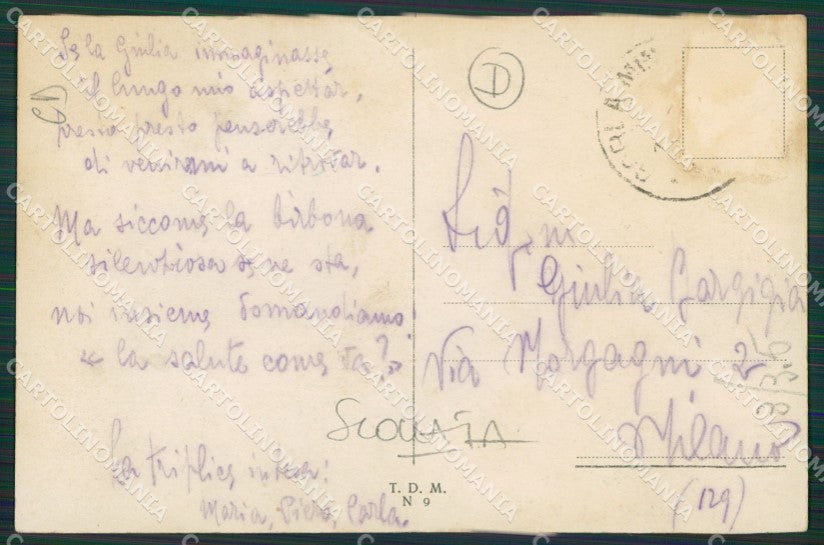 Se la Giulia immaginasse
il lungo mio aspettar,
presto presto penserebbe
di venirmi a ritrovar.
Ma siccome la birbona
silenziosa se ne sta,
noi insieme domandiamo!
« la salute come va?»
La triplice intesa:
Maria, Piera, Carla.
D
Giulia
Via Morgagni 2
Milano
(129)
SCOLLATA
T. D. M.
N 9
CARTOLINOMANIA